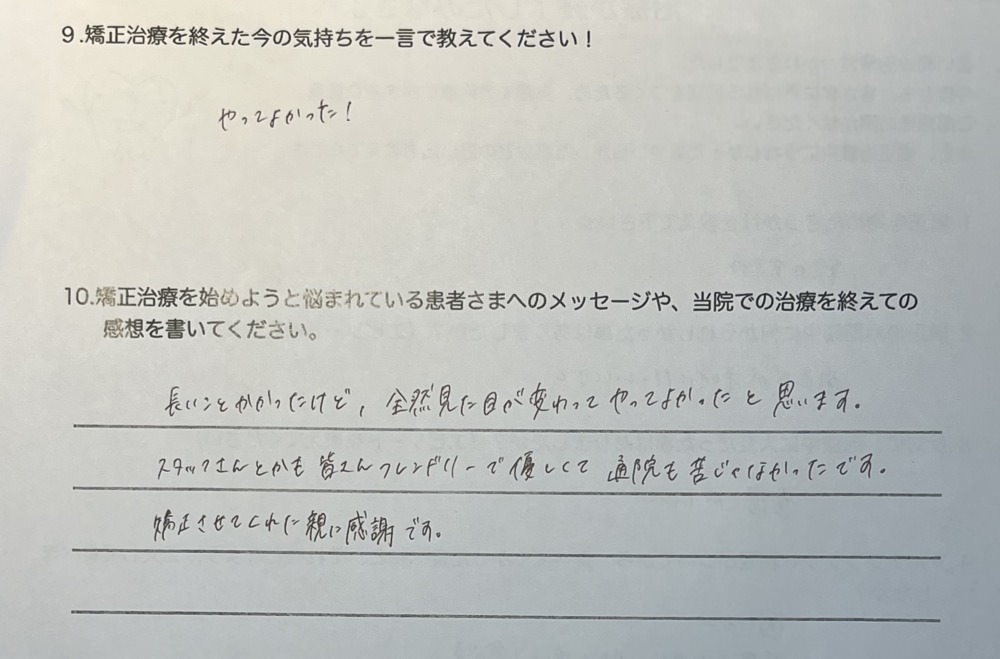 9.矯正治療を終えた今の気持ちを一言で教えてください！
やってよかった！
10.矯正治療を始めようと悩まれている患者さまへのメッセージや、当院での治療を終えての
感想を書いてください。
長いことかかったけど、全然見た目が変わってやってよかったと思います。
スタッフさんとかも皆さんフレンドリーで優しくて通院も苦じゃなかったです。
矯正させてくれた親に感謝です。